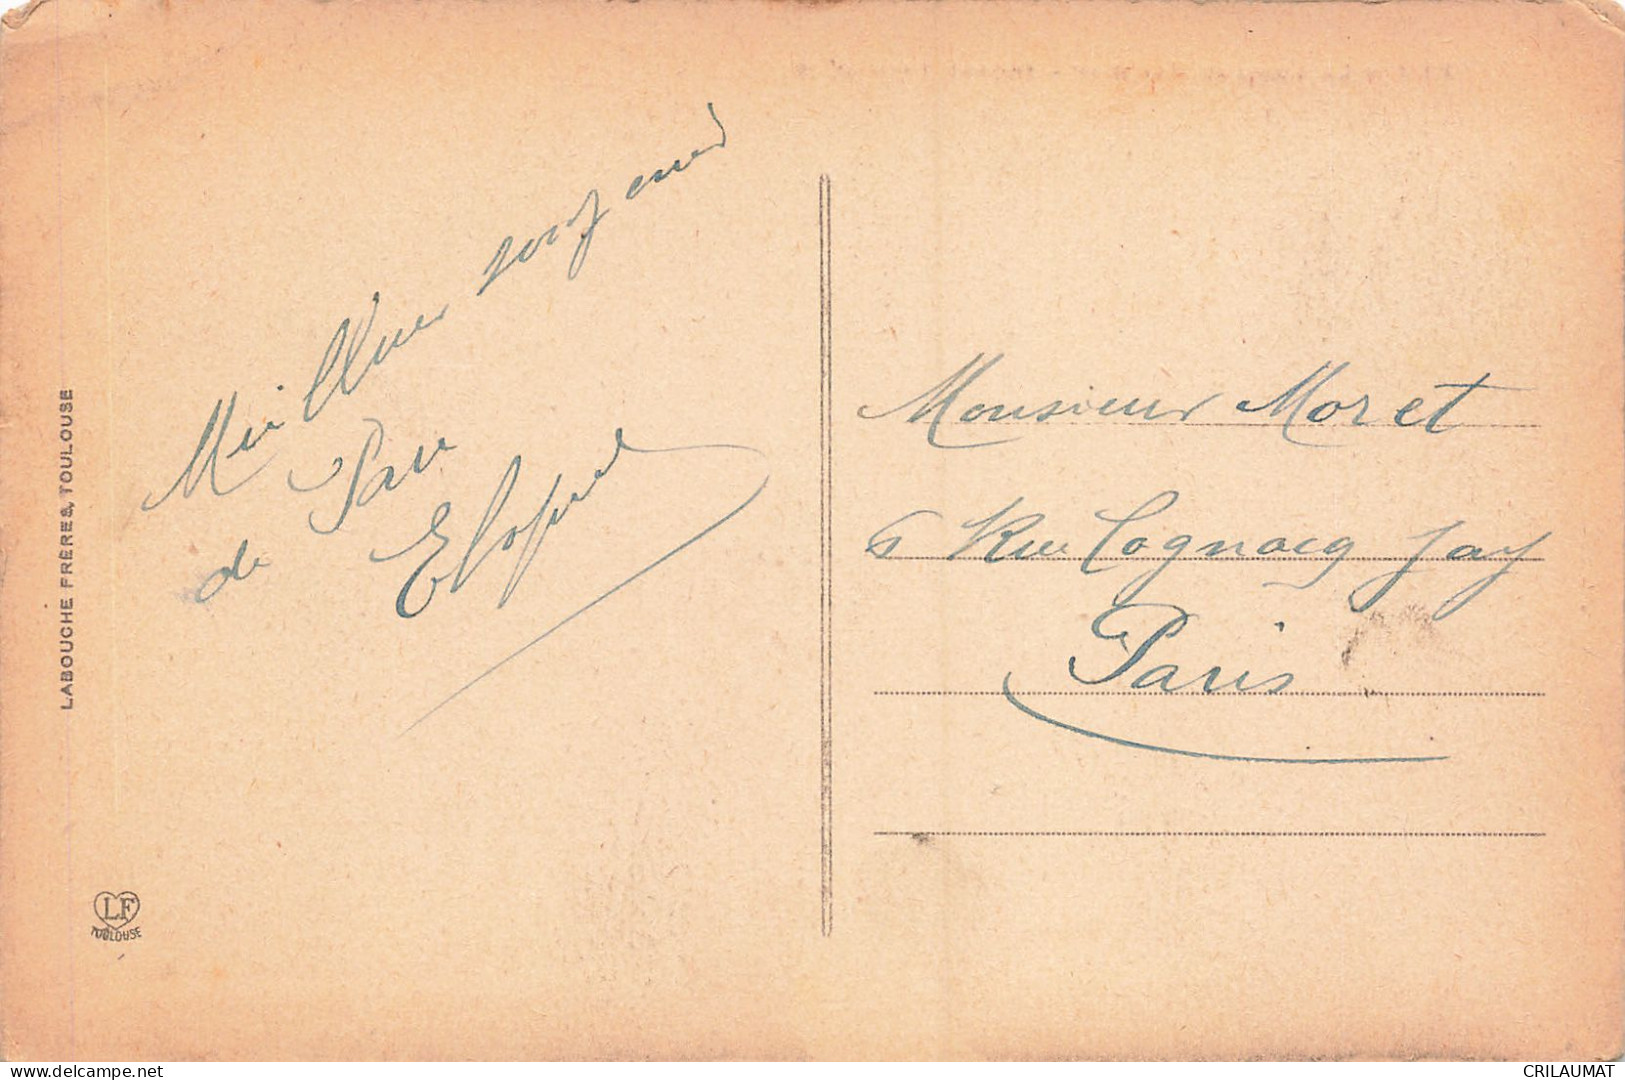 Meilleurs souvenirs
de Pau
LABOUCHE FRÈRES, TOULOUSE
LF
TOULOUSE
Monsieur Moret
6 Rue Cognacq Jay
Paris
delcampe.net
CRILAUMAT